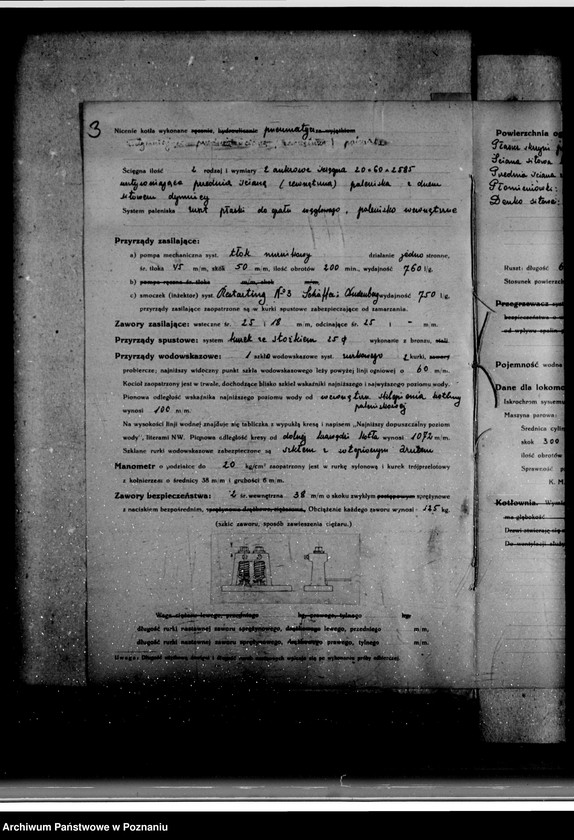 3
Nicenie kotła wykonane ręcznie, hydraulicznie pneumatycz
Ścięgna ilość 2 rodzaj i wymiary 2 ankrowe ścięgna 20×60×2585
przednią ścianę (zewnętrzną) paleniska z dnem
sitowem dymnicy
System paleniska ruszt płaski do opału węglowego, palenisko wewnętrzne
Przyrządy zasilające:
a) pompa mechaniczna syst. tłok nurnikowy działanie jedno stronne,
śr. tłoka 45 m/m, skok 50 m/m, ilość obrotów 200 min., wydajność 760 l/g.
b) pompa ręczna śr. tłoka m/m, skok m/m.
c) smoczek (inżektor) syst. Restarting No 3 Schäffer i Budenberg wydajność 750 l/g.
przyrządy zasilające zaopatrzone są w kurki spustowe zabezpieczające od zamarzania.
Zawory zasilające: wsteczne śr. 25 i 18 m/m, odcinające śr. 25 i - m/m.
Przyrządy spustowe: system kurek ze stożkiem 25 φ wykonanie z bronzu, stali
Przyrządy wodowskazowe: 1 szkło wodowskazowe syst. nurkowego 2 kurki, zawory
probiercze; najniższy widoczny punkt szkła wodowskazowego leży powyżej linji ogniowej o 60 m/m.
Kocioł zaopatrzony jest w trwałe, dochodzące blisko szkieł wskaźniki najniższego i najwyższego poziomu wody.
Pionowa odległość wskaźnika najniższego poziomu wody od wewnętrzna sklepienia
wynosi 100 m/m. paleniskowej
Na wysokości linji wodnej znajduje się tabliczka z wypukłą kresą i napisem „Najniższy dopuszczalny poziom
wody", literami NW. Pionowa odległość kresy od dolnej krawędzi kotła wynosi 1072 m/m.
Szklane rurki wodowskazowe zabezpieczone są szkłem z wtopionym drutem
Manometr o podziałce do 20 kg/cm² zaopatrzony jest w rurkę syfonową i kurek trójprzelotowy
z kołnierzem o średnicy 38 m/m i grubości 6 m/m.
Zawory bezpieczeństwa: 2 śr. wewnętrzna 38 m/m o skoku zwykłym postępowym sprężynowe
z naciskiem bezpośrednim, sprężynowo dźwigowe, ciężarowe. Obciążenie każdego zaworu wynosi 125 kg.
(szkic zaworu, sposób zawieszenia ciężaru.)
Waga ciężaru lewego, przedniego kg, prawego, tylnego kg.
długość rurki nastawnej zaworu sprężynowego, dźwigowego lewego, przedniego m/m.
długość rurki nastawnej zaworu sprężynowego, dźwigowego prawego, tylnego m/m.
Uwaga: Długość użytkową dźwigni i długość rurek nastawnych wpisuje się po wykonaniu próby odbiorczej.
Powierzchnia og
Ściana sitowa
Przednia ściana
Płomieniówki:
Denko sitowe:
Ruszt: długość 6
Stosunek powierzch
Przegrzewacz
Pojemność wodna
Dane dla lokomo
Iskrochron systemu
Maszyna parowa:
Średnica cylin
skok 300
ilość obrotów
Sprawność p
K. M.
Kotłownia.
ma głębokość
Drzwi otwierają się
Do wentylacji służy
Archiwum Państwowe w Poznaniu